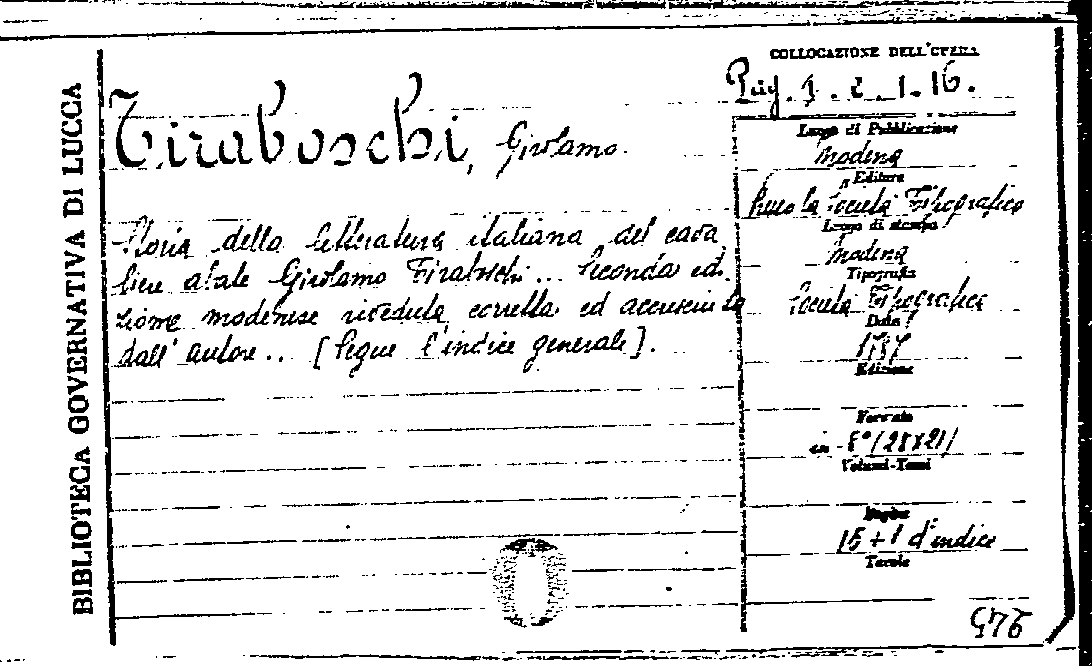 BIBLIOTECA GOVERNATIVA DI LUCCA
COLLOCAZIONE DELL'OPERA
Tiraboschi, Girolamo.
Storia della letteratura italiana del cava
liere abate Girolamo Tiraboschi... Seconda edi
zione modenese riveduta corretta ed accresciuta
dall'autore.. [Segue l'indice generale].
Luogo di Pubblicazione
Modena
Editore
Presso la Società Tipografica
Luogo di stampa
Modena
Tipografia
Società Tipografica
Data
1787
Edizione
Formato
in-8° (28x21)
Volumi-Tomi
Pagine
15+1 d'indice
Tavole